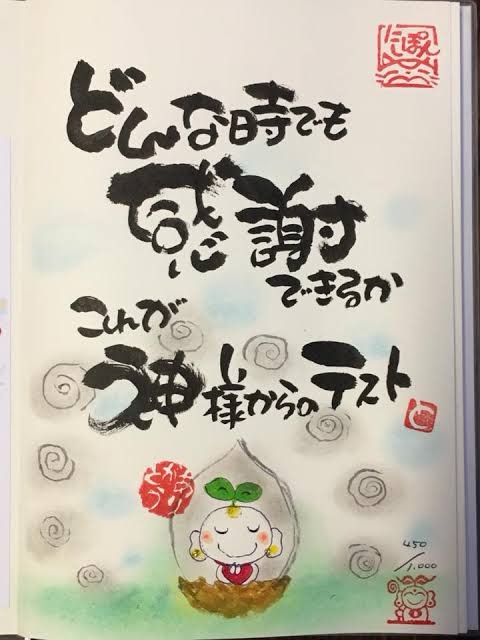 にっぽん
どんな時でも
感謝
できるか
これが
神様からのテスト
450
/1.000